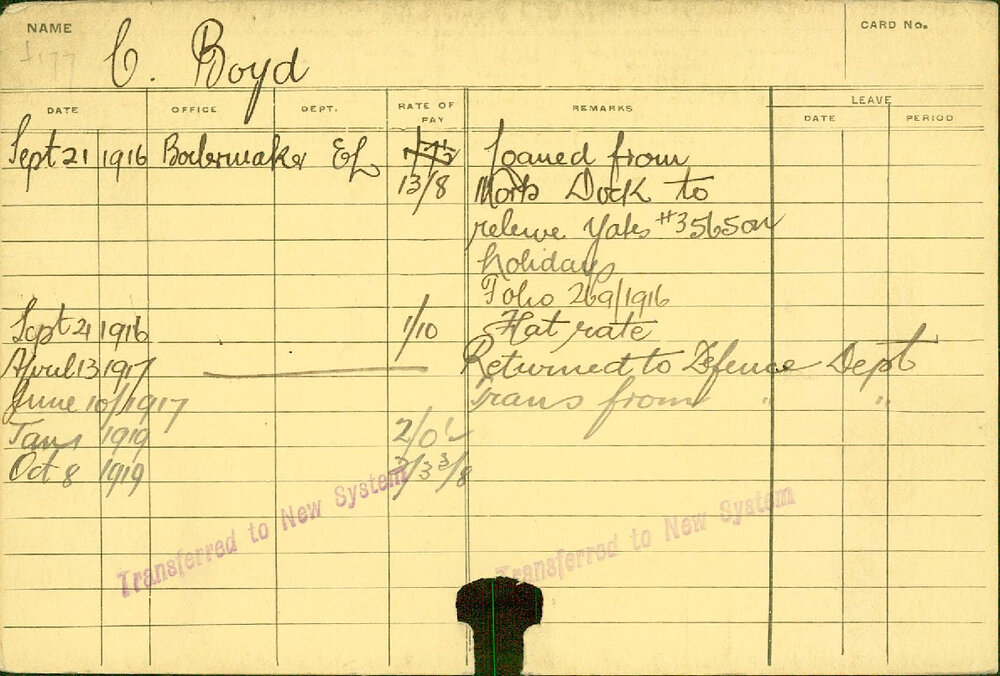 NAME
CARD No.
C. Boyd
DATE OFFICE DEPT. RATE OF PAY REMARKS LEAVE
DATE PERIOD
Sept 21 1916 Boilermaker EL Loaned from
13/8 Morts Dock to
relieve Yates #3565 on
holidays
Folio 269/1916
Sept 21 1916 1/10 Flat rate
April 13 1917 Returned to Defence Dept
June 10/1917 Trans from " "
Jan 1 1919 2/0½
Oct 8 1919 2/3 3/8
Transferred to New System
Transferred to New System